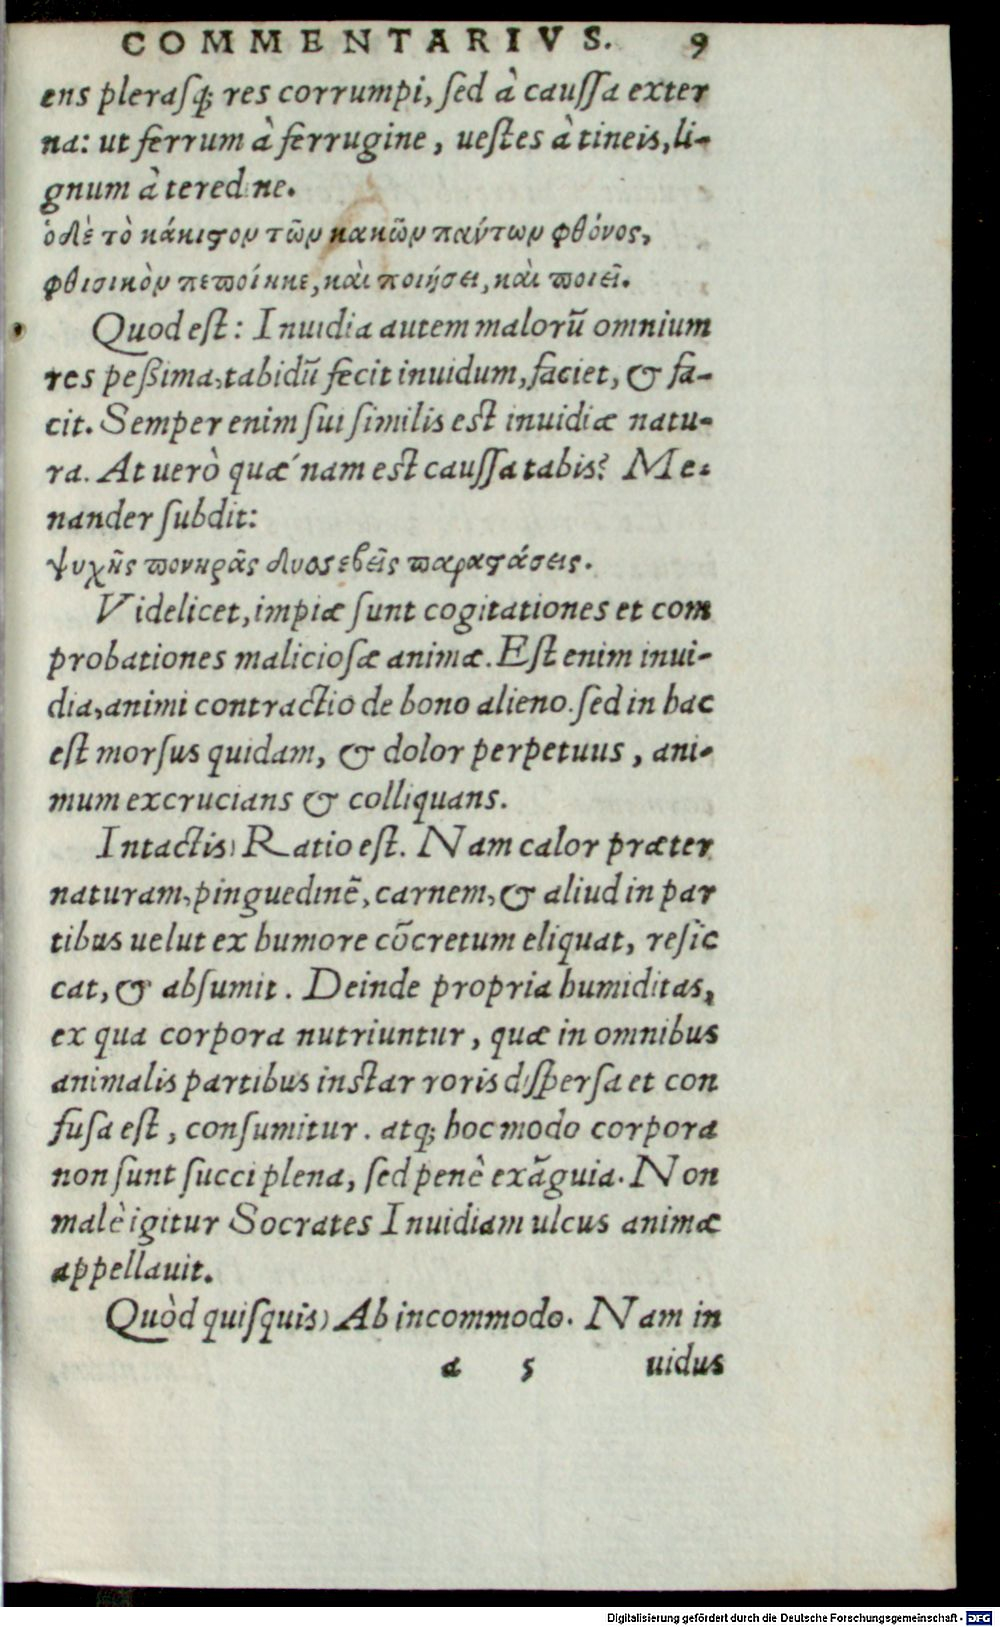 COMMENTARIVS. 9
ens plerasq; res corrumpi, sed à caussa exter
na: ut ferrum à ferrugine, uestes à tineis, li-
gnum à teredine.
ὁ δὲ τὸ κάκιστον τῶν κακῶν πάντων φθόνος,
φθισικὸν πεποίηκε, καὶ ποιήσει, καὶ ποιεῖ.
Quod est: Inuidia autem malorū omnium
res peßima, tabidū fecit inuidum, faciet, & fa-
cit. Semper enim sui similis est inuidiæ natu-
ra. At uerò quæ´nam est caussa tabis? Me-
nander subdit:
ψυχῆς πονηρᾶς δυσσεβεῖς παραστάσεις.
Videlicet, impiæ sunt cogitationes et com
probationes maliciosæ animæ. Est enim inui-
dia, animi contractio de bono alieno. sed in hac
est morsus quidam, & dolor perpetuus, ani-
mum excrucians & colliquans.
Intactis) Ratio est. Nam calor præter
naturam, pinguedinē, carnem, & aliud in par
tibus uelut ex humore cōcretum eliquat, resic
cat, & absumit. Deinde propria humiditas,
ex qua corpora nutriuntur, quæ in omnibus
animalis partibus instar roris dispersa et con
fusa est, consumitur. atq; hoc modo corpora
non sunt succi plena, sed penè exāguia. Non
malè igitur Socrates Inuidiam ulcus animæ
appellauit.
Quòd quisquis) Ab incommodo. Nam in
a 5 uidus
Digitalisierung gefördert durch die Deutsche Forschungsgemeinschaft - DFG